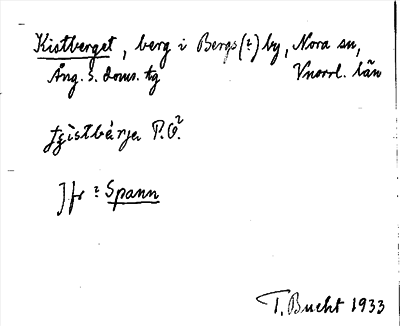 Kistberget, berg i Bergs(?) by, Nora sn,
Ång. s. doms. tg Vnorrl. län
P.O.²
Jfr ? Spann
T. Bucht 1933